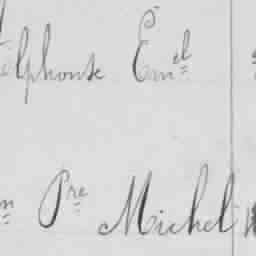 elphonse Emel
n Pre Michel